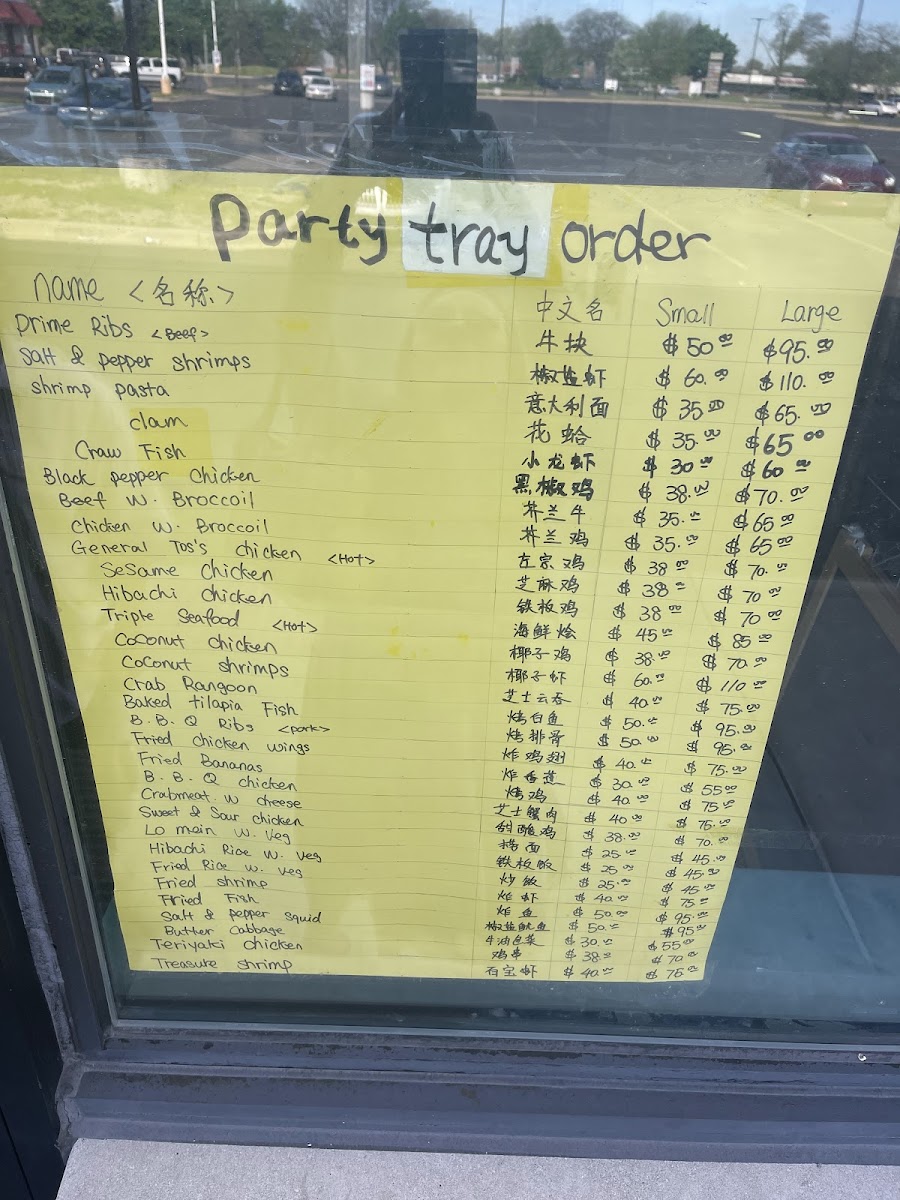 Party tray order
name <名称> 中文名 Small Large
Prime Ribs <Beef> 牛抉 $50.00 $95.00
Salt & pepper shrimps 椒盐虾 $60.00 $110.00
shrimp pasta 意大利面 $35.00 $65.00
clam 花蛤 $35.00 $65.00
Craw Fish 小龙虾 $30.00 $60.00
Black pepper Chicken 黑椒鸡 $38.00 $70.00
Beef W. Broccoil 芥兰牛 $35.00 $65.00
Chicken W. Broccoil 芥兰鸡 $35.00 $65.00
General Tos's chicken <Hot> 左宗鸡 $38.00 $70.00
Sesame chicken 芝麻鸡 $38.00 $70.00
Hibachi chicken 铁板鸡 $38.00 $70.00
Triple Seafood <Hot> 海鲜烩 $45.00 $85.00
Coconut chicken 椰子鸡 $38.00 $70.00
Coconut shrimps 椰子虾 $60.00 $110.00
Crab Rangoon 芝士云吞 $40.00 $75.00
Baked tilapia Fish 烤白鱼 $50.00 $95.00
B.B.Q Ribs <pork> 烤排骨 $50.00 $95.00
Fried chicken wings 炸鸡翅 $40.00 $75.00
Fried Bananas 炸香蕉 $30.00 $55.00
B.B.Q chicken 烤鸡 $40.00 $75.00
Crabmeat. w cheese 芝士蟹肉 $40.00 $75.00
Sweet & Sour chicken 甜酸鸡 $38.00 $70.00
Lo main w. Veg 捞面 $25.00 $45.00
Hibachi Rice w. veg 铁板饭 $25.00 $45.00
Fried Rice w. veg 炒饭 $25.00 $45.00
Fried shrimp 炸虾 $40.00 $75.00
Fried Fish 炸鱼 $50.00 $95.00
Salt & pepper squid 椒盐鱿鱼 $50.00 $95.00
Butter Cabbage 牛油包菜 $30.00 $55.00
Teriyaki chicken 鸡串 $38.00 $70.00
Treasure shrimp 石宝虾 $40.00 $75.00